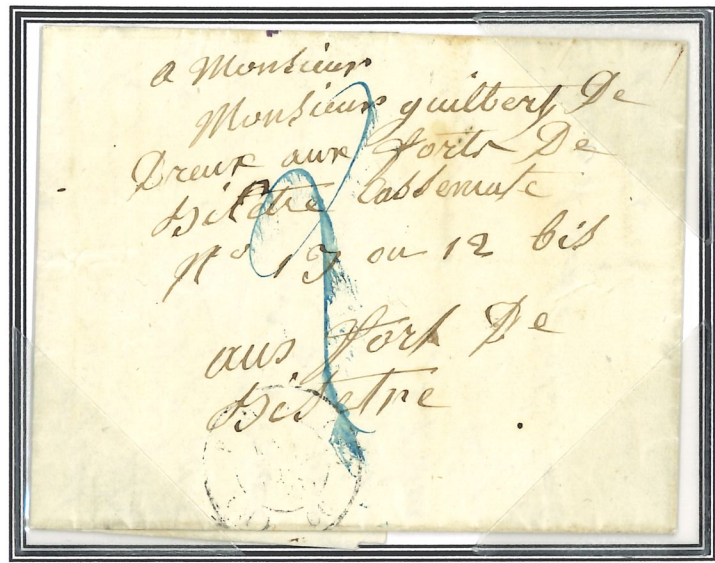 a Monsieur
Monsieur guilbert De
Dreux aux forts De
Bisetre Cassemate
N° 13 ou 12 bis
aus fort De
Bisetre